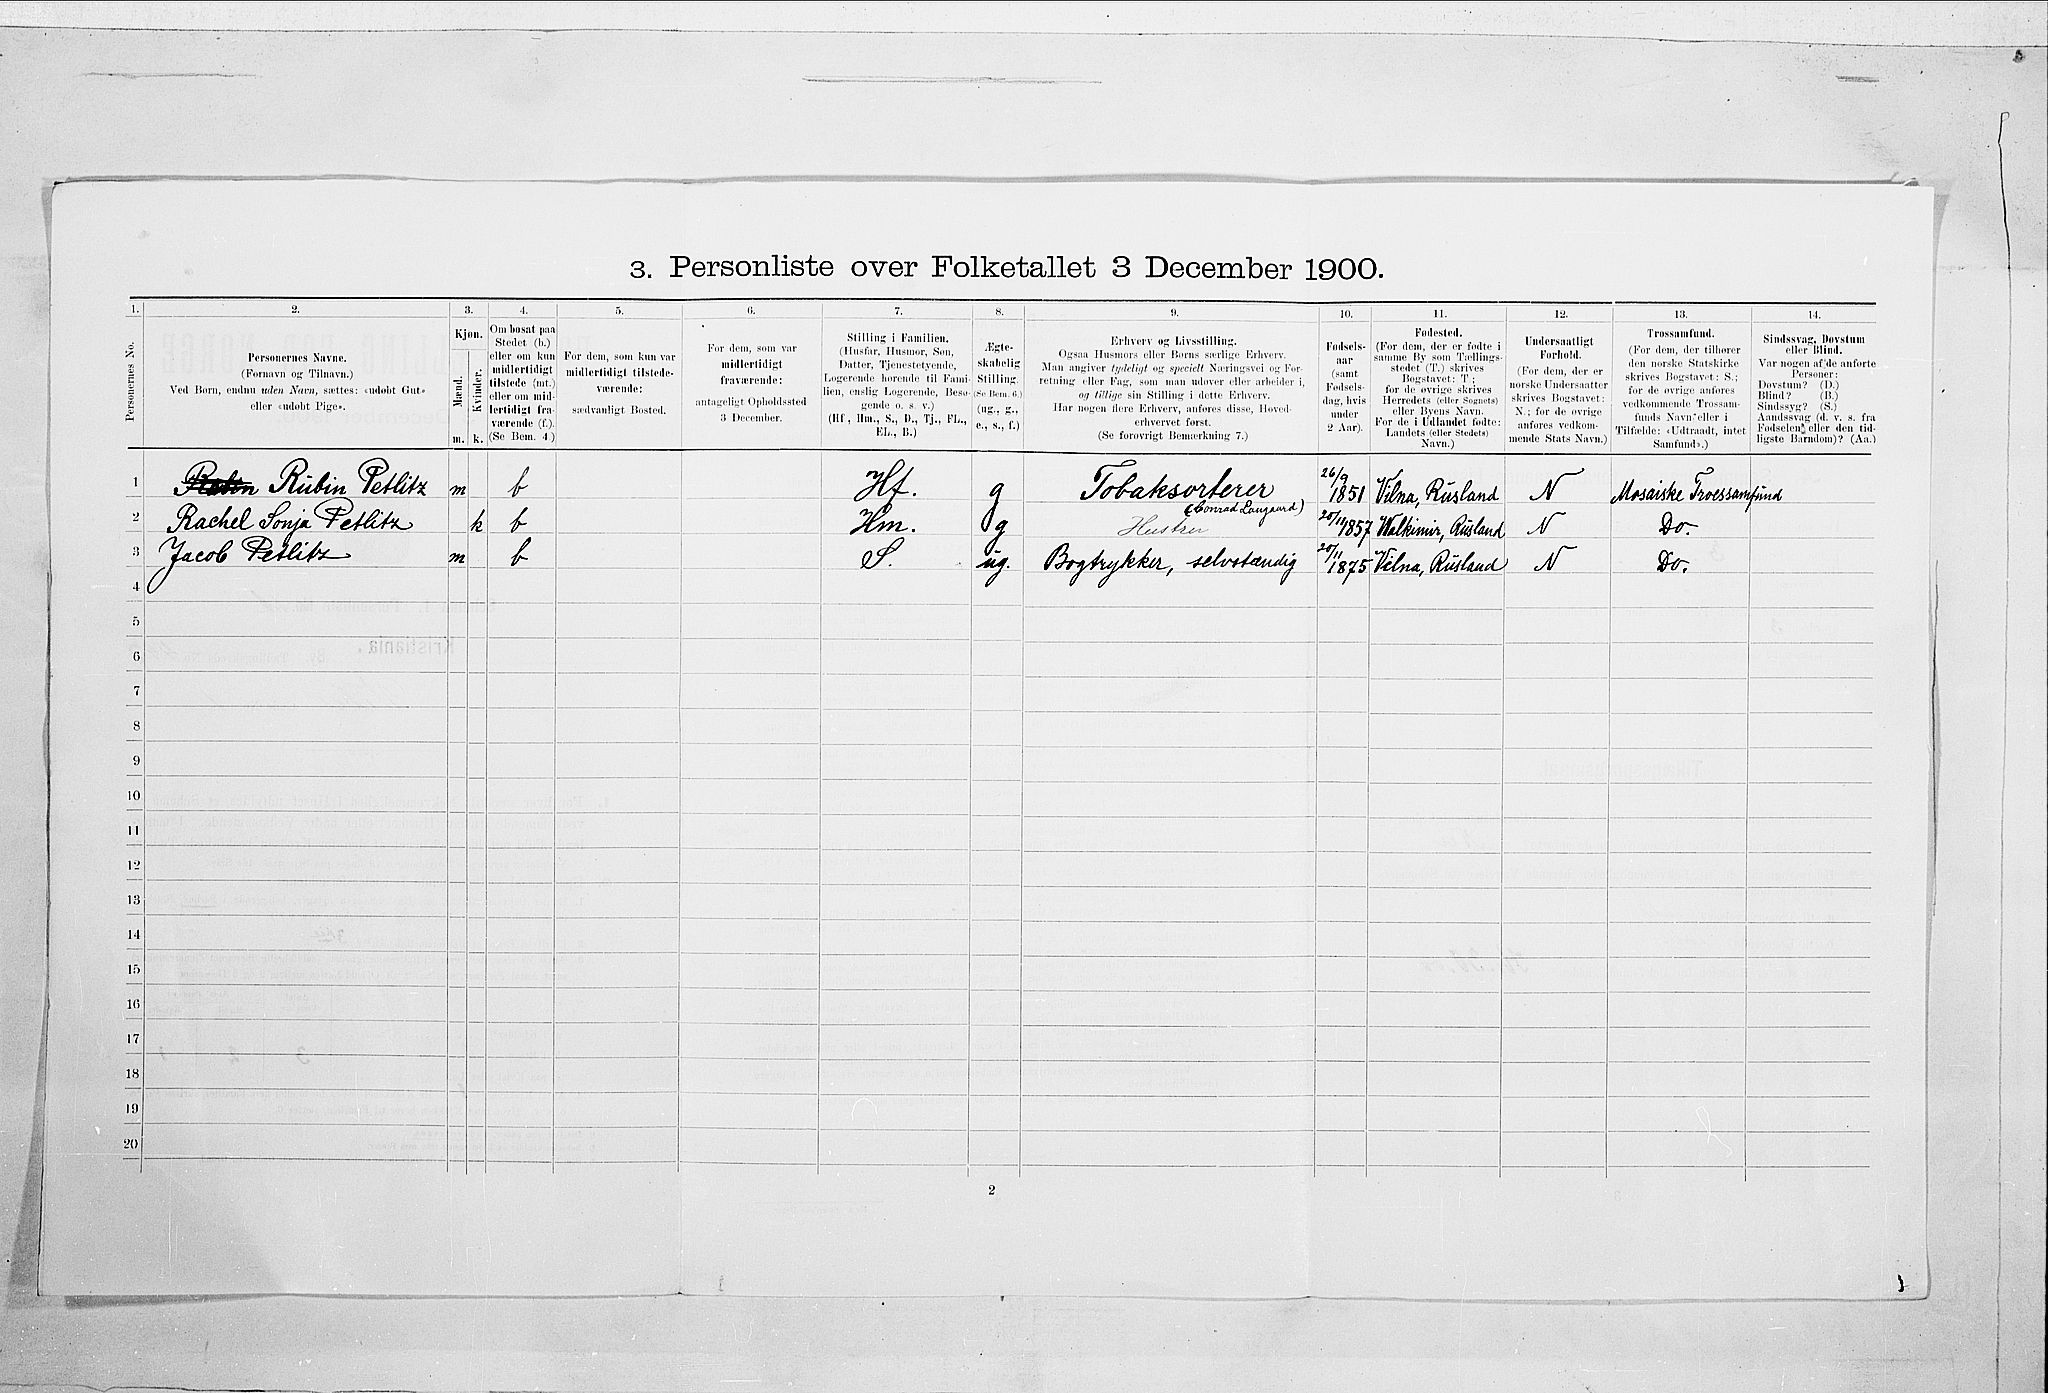 3. Personliste over Folketallet 3 December 1900.
1. 2. 3. 4. 5. 6. 7. 8. 9. 10. 11. 12. 13. 14.
Personernes No.
Personernes Navne.
(Fornavn og Tilnavn.)
Ved Børn, endnu uden Navn, sættes: «udøbt Gut»
eller «udøbt Pige».
Kjøn.
Mænd.
Kvinder.
m. k.
Om bosat paa
Stedet (b.)
eller om kun
midlertidigt
tilstede (mt.)
eller om mid-
lertidigt fra-
værende (f.).
(Se Bem. 4.)
For dem, som kun var
midlertidigt tilstede-
værende:
sædvanligt Bosted.
For dem, som var
midlertidigt
fraværende:
antageligt Opholdssted
3 December.
Stilling i Familien.
(Husfar, Husmor, Søn,
Datter, Tjenestetyende,
Logerende hørende til Fami-
lien, enslig Logerende, Besø-
gende o. s. v.)
(Hf, Hm., S., D., Tj., FL.,
EL., B.)
Ægte-
skabelig
Stilling.
(Se Bem. 6.)
(ug., g.,
e., s., f.)
Erhverv og Livsstilling.
Ogsaa Husmors eller Børns særlige Erhverv.
Man angiver tydeligt og specielt Næringsvei og For-
retning eller Fag, som man udøver eller arbeider i,
og tillige sin Stilling i dette Erhverv.
Har nogen flere Erhverv, anføres disse, Hoved-
erhvervet først.
(Se forøvrigt Bemærkning 7.)
Fødsels-
aar
(samt
Fødsels-
dag, hvis
under
2 Aar).
Fødested.
(For dem, der er fødte i
samme By som Tællings-
stedet (T.) skrives
Bogstavet: T;
for de øvrige skrives
Herredets (eller Sognets)
eller Byens Navn.
For de i Udlandet fødte:
Landets (eller Stedets)
Navn.)
Undersaatligt
Forhold.
(For dem, der er
norske Undersaatter
skrives Bogstavet:
N.; for de øvrige
anføres vedkom-
mende Stats Navn.)
Trossamfund.
(For dem, der tilhører
den norske Statskirke
skrives Bogstavet: S.;
for de øvrige anføres
vedkommende Trossam-
funds Navn eller i
Tilfælde: «Udtraadt, intet
Samfund».)
Sindssvag, Døvstum
eller Blind.
Var nogen af de anførte
Personer:
Døvstum? (D.)
Blind? (B.)
Sindssyg? (S.)
Aandssvag (d. v. s. fra
Fødselen eller den tid-
ligste Barndom)? (Aa.)
1 Rubin Petlitz m b Hf. g Tobaksorterer (Conrad Langaard) 26/9 1851 Vilna, Rusland N Mosaiske Troessamfund
2 Rachel Sonja Petlitz k b Hm. g Hustru 20/11 1857 Walkimir, Rusland N Do.
3 Jacob Petlitz m b S. ug. Bogtrykker, selvstændig 20/11 1875 Vilna, Rusland N Do.
4
5
6
7
8
9
10
11
12
13
14
15
16
17
18
19
20
2